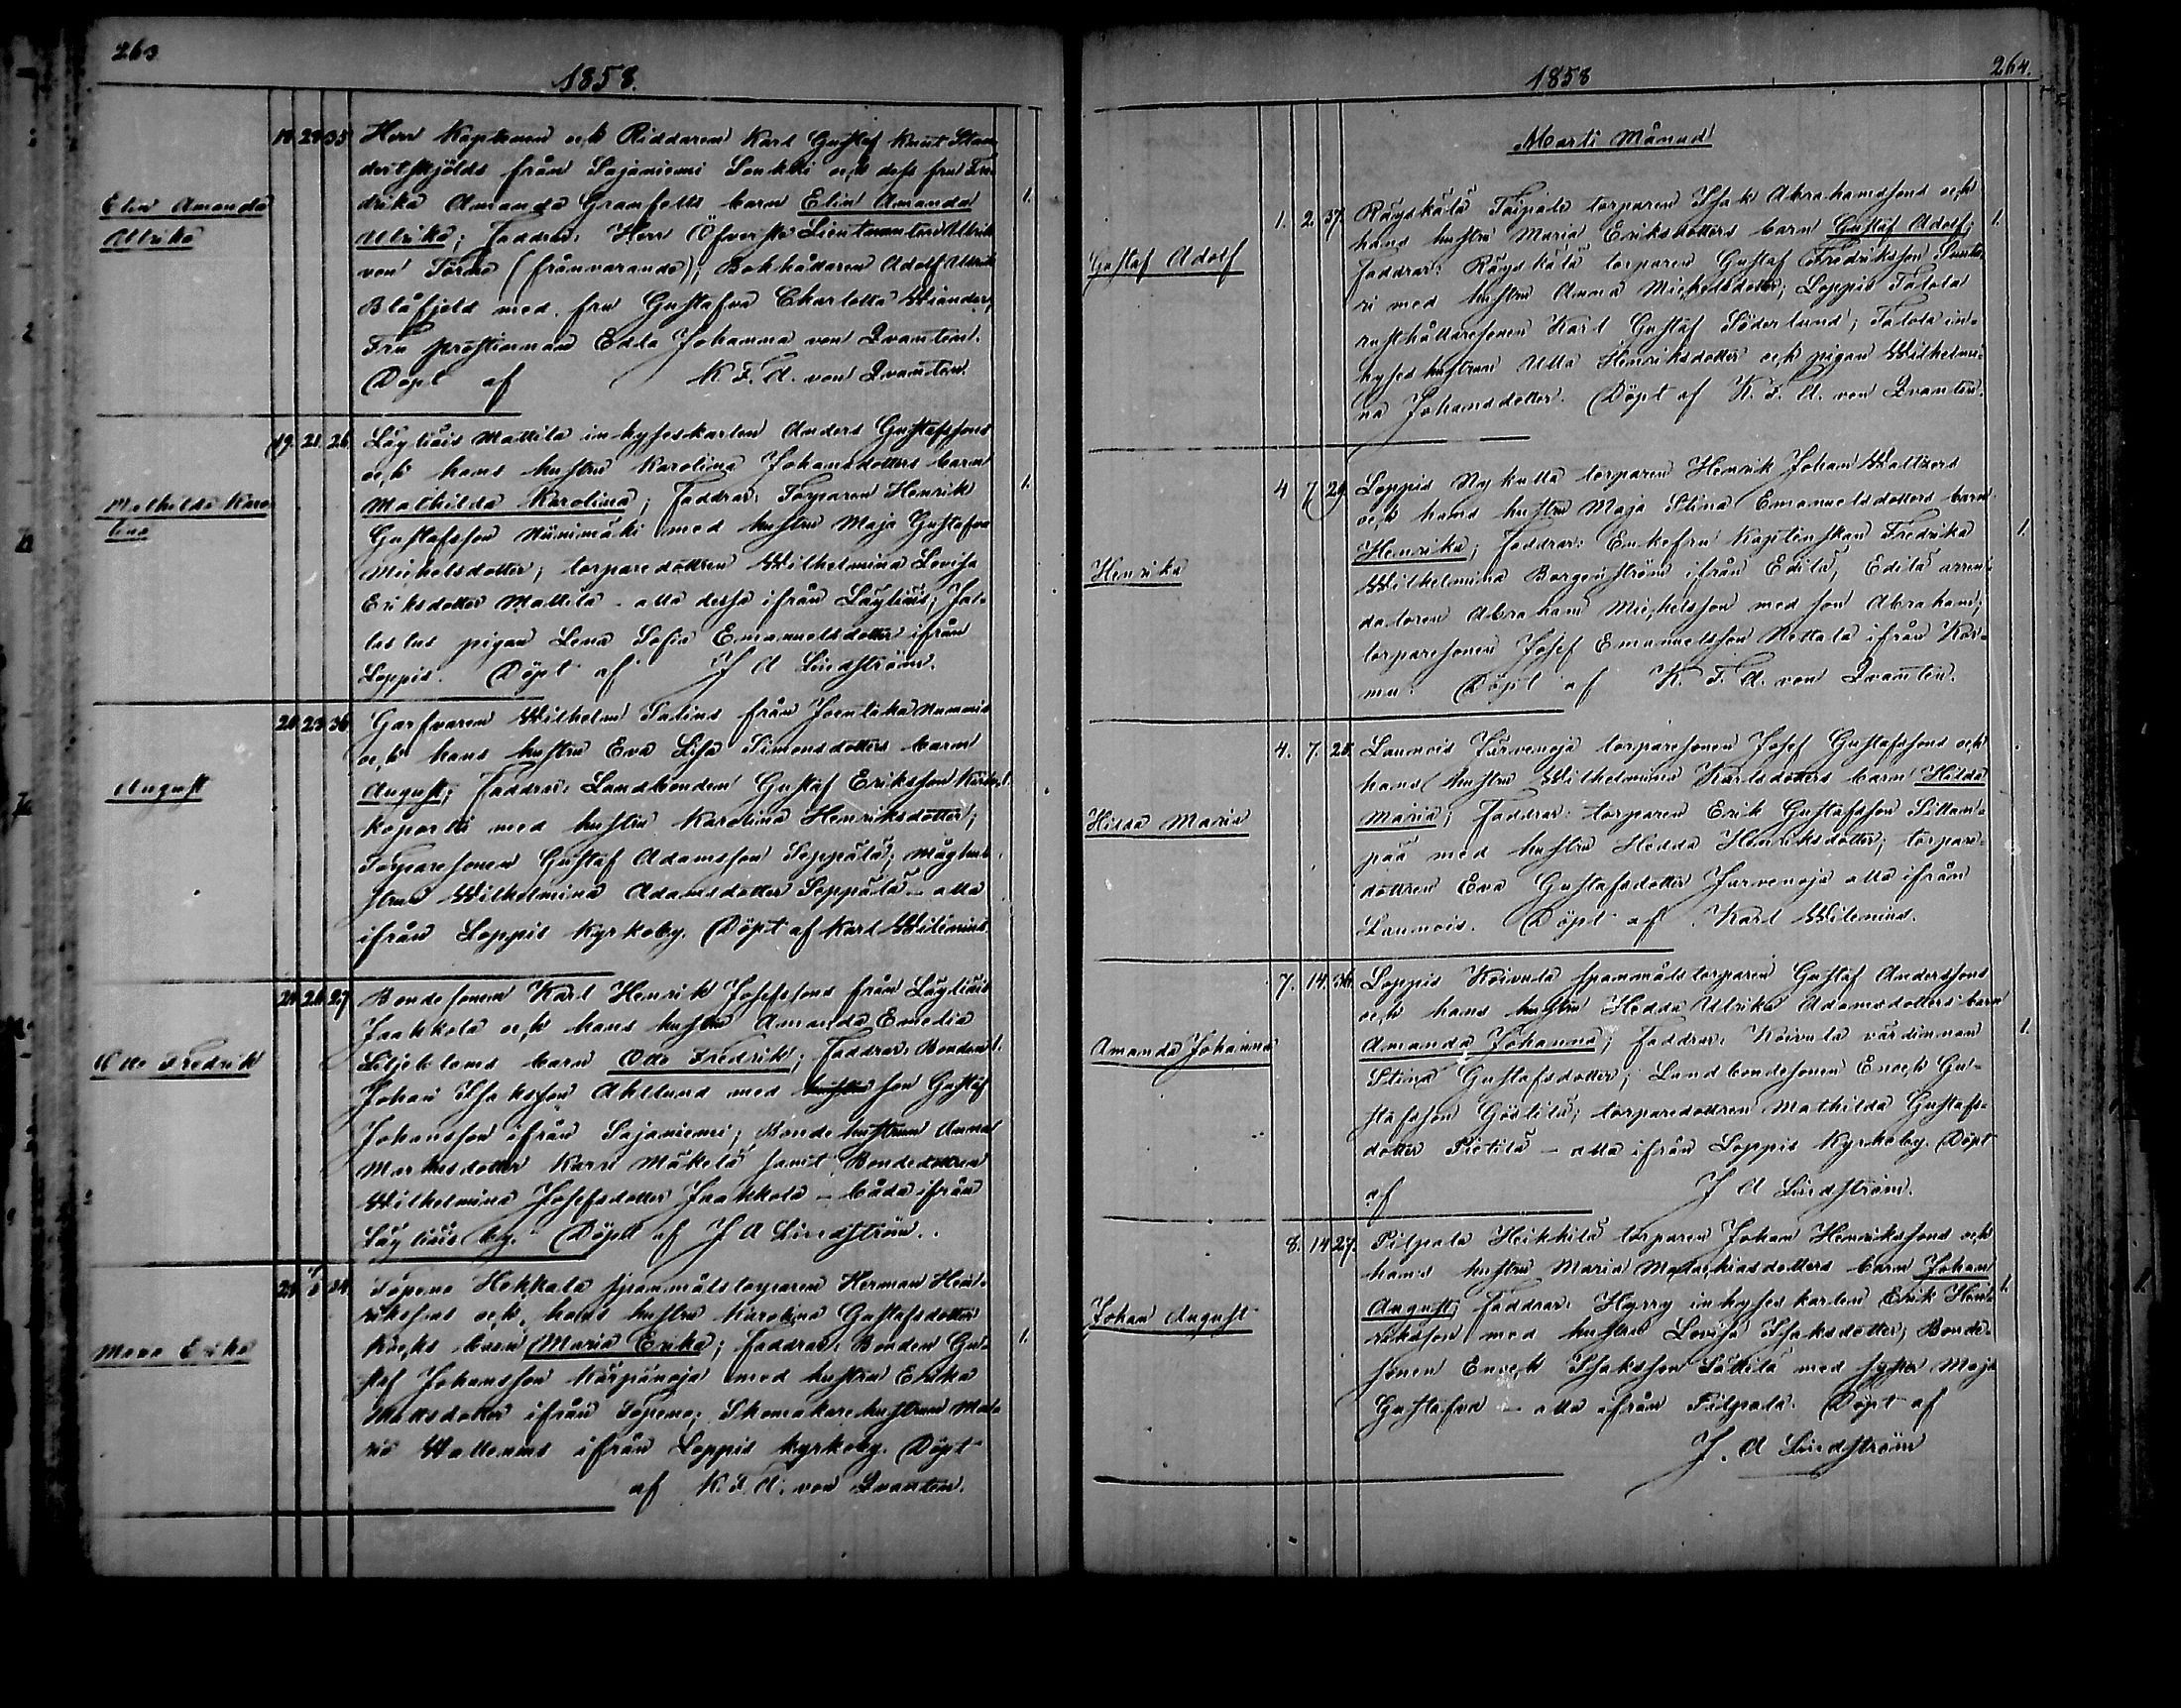 263
1858.
Elin Amanda
Ulrika
19. 24 35 Herr Kaptenen och Riddaren Karl Gustaf Knut Stan
dertskjölds från Sajaniemi Soukki och dess fru Fre
drika Amanda Granfelts barn Elin Amanda 1.
Ulrika; Faddrar: Herr Öfverste Lieutnanten Ulrik
von Törne (frånvarande); Bokhållaren Adolf Ulrik
Blåfjeld med fru Gustafva Charlotta Wiander;
Fru prostinnan Edla Johanna von Qvanten.
Döpt af K. F. A. von Qvanten.
Mathilda Karo
lina
19. 21. 26 Läyliäis Mattila inhyseskarlen Anders Gustafssons
och hans hustru Karolina Johansdotters barn
Mathilda Karolina; Faddrar: Torparen Henrik 1.
Gustafsson Niinimäki med hustru Maja Gustafva
Michelsdotter; torparedottren Wilhelmina Lovisa
Eriksdotter Mattila - alla dessa ifrån Läyliäis;
pigan Lena Sofia Emanuelsdotter ifrån
Loppis. Döpt af J A Lindström.
August
20 23 36 Garfvaren Wilhelm Salins från Joentaka Nummis
och hans hustru Eva Lisa Simonsdotters barn
August; Faddrar: Landbonden Gustaf Eriksson
koporkki med hustru Karolina Henriksdotter;
Torparesonen Gustaf Adamsson Seppälä;
strun Wilhelmina Adamsdotter Seppälä - alla
ifrån Loppis Kyrkoby. Döpt af Karl Wilenius.
Otto Fredrik
24 26 27 Bondesonen Karl Henrik Josefssons från Läyliäis
Jaakkola och hans hustru Amanda Emelia
Liljebloms barn Otto Fredrik; Faddrar: Bonden 1.
Johan Isaksson Ahllund med hustru son Gustaf
Johansson ifrån Sajaniemi; Bondehustrun Anna
Markusdotter Kari Mäkelä samt Bondedottren
Wilhelmina Josefsdotter Jaakkola - båda ifrån
Läyliäis by. Döpt af J A Lindström.
Maria Erika
24 34 Topeno Hekkala spanmålstorparen Herman Hen
rikssons och hans hustru Karolina Gustafsdotter
Kocks barn Maria Erika; Faddrar: Bonden Gu- 1.
staf Johansson Kärpänoja med hustru Erika
Mattsdotter ifrån Topeno; Skomakarehustrun Ma
ria Wallenius ifrån Loppis Kyrkoby. Döpt
af K. F. A. von Qvanten.
1858
264.
Marti Månad
Gustaf Adolf
1. 2. 37. Räyskälä Taipale torparen Isak Abrahamssons och
hans hustru Maria Eriksdotters barn Gustaf Adolf; 1.
Faddrar: Räyskälä torparen Gustaf Fredriksson
ri med hustru Anna Michelsdotter; Loppis Talola
rusthållaresonen Karl Gustaf Söderlund; Talola in-
hyses hustrun Ulla Henriksdotter och pigan Wilhelmi-
na Johansdotter. Döpt af K. F. A. von Qvanten.
Henrika
4 7 29 Loppis Nykulla torparen Henrik Johan Walters
och hans hustru Maja Stina Emanuelsdotters barn
Henrika; Faddrar: Enkefru Kaptenskan Fredrika 1.
Wilhelmina Borgenström ifrån Edilä; Edilä arren-
datoren Abraham Michelsson med son Abraham;
torparesonen Josef Emanuelsson Rettala ifrån Kor-
mu. Döpt af K. F. A. von Qvanten.
Hilda Maria
4. 7. 25 Launois Järvenoja torparesonen Josef Gustafssons och
hans hustru Wilhelmina Karlsdotters barn Hilda
Maria; Faddrar: torparen Erik Gustafsson Sillan-
pää med hustru Hedda Henriksdotter; torpare-
dottren Eva Gustafsdotter Järvenoja alla ifrån
Launois. Döpt af Karl Wilenius.
Amanda Johanna
7. 14. 36. Loppis Koivula spanmålstorparen Gustaf Anderssons
och hans hustru Hedda Ulrika Adamsdotters barn
Amanda Johanna; Faddrar: Koivula värdinnan 1.
Stina Gustafsdotter; Landbondesonen Enoch Gu-
stafsson Gödlilä; torparedottren Mathilda Gustafs-
dotter Pietilä - alla ifrån Loppis Kyrkoby. Döpt
af J A Lindström.
Johan August
8. 14 27. Pilpala Heikkilä torparen Johan Henrikssons och
hans hustru Maria Mathiasdotters barn Johan
August; Faddrar: Hyrry inhyseskarlen Erik Hen- 1.
riksson med hustru Lovisa Isaksdotter; Bonde-
sonen Enoch Isaksson Lättilä med syster Maja
Gustafva - alla ifrån Pilpala. Döpt af
J. A Lindström